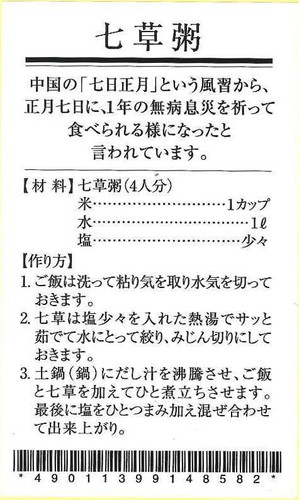 七草粥
中国の「七日正月」という風習から、
正月七日に、1年の無病息災を祈って
食べられる様になったと
言われています。
【材料】七草粥(4人分)
米……………………1カップ
水……………………1ℓ
塩……………………少々
【作り方】
1. ご飯は洗って粘り気を取り水気を切って
おきます。
2. 七草は塩少々を入れた熱湯でサッと
茹でて水にとって絞り、みじん切りにして
おきます。
3. 土鍋(鍋)にだし汁を沸騰させ、ご飯
と七草を加えてひと煮立ちさせます。
最後に塩をひとつまみ加え混ぜ合わせ
て出来上がり。
*4901139914858​2*